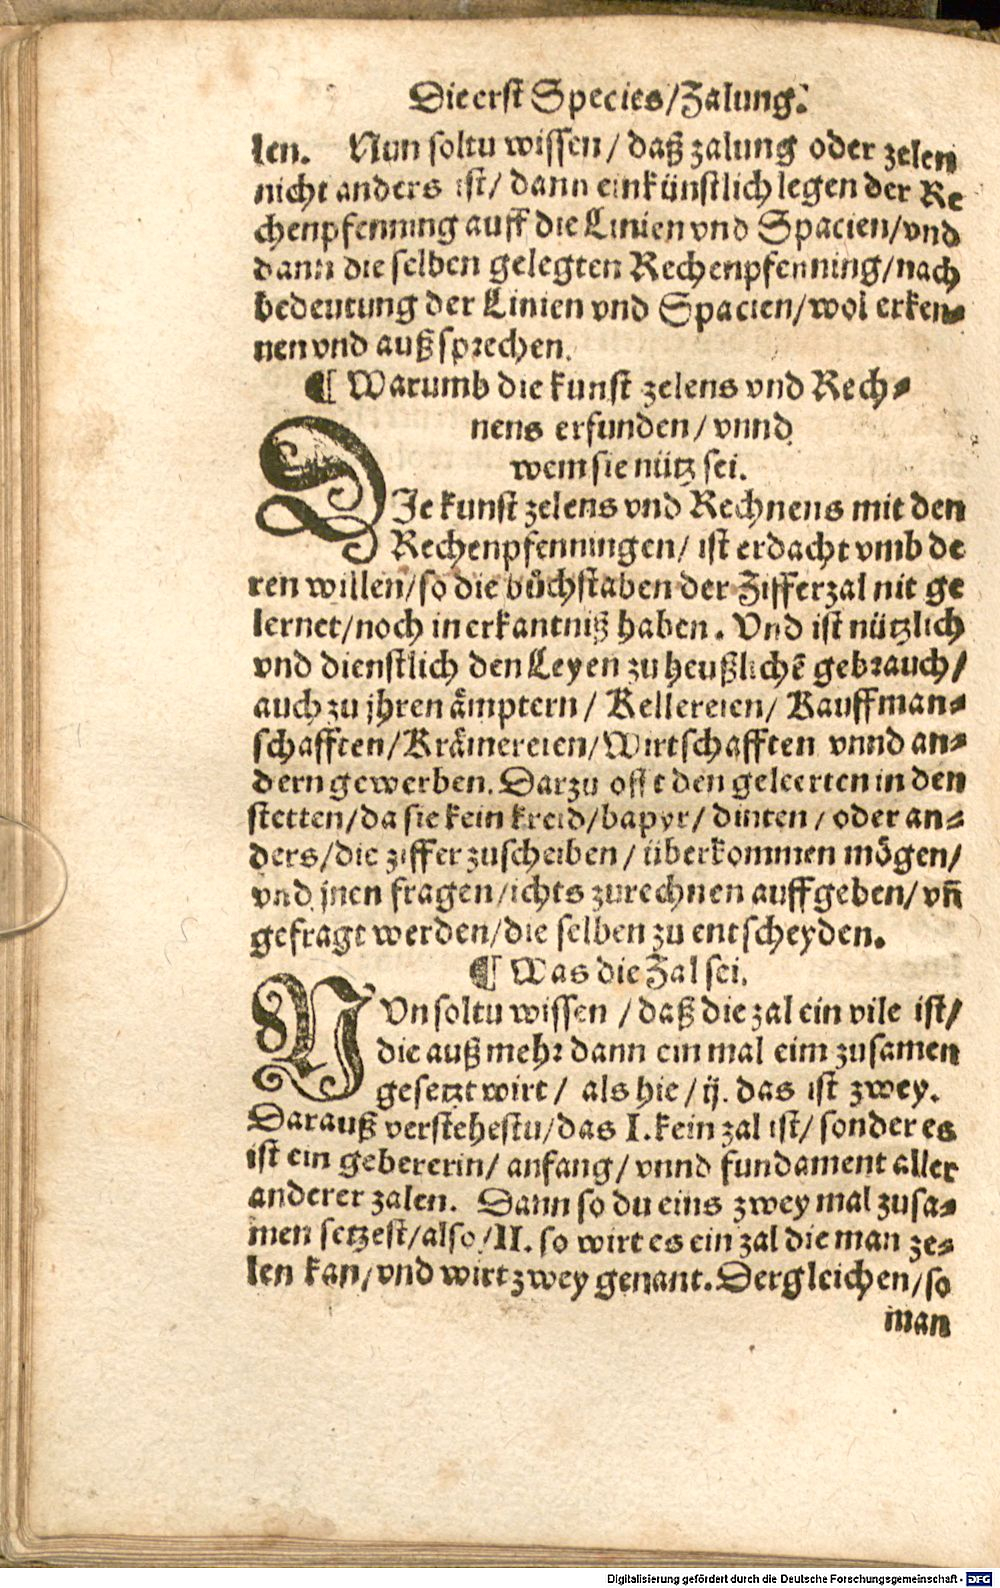 Die erst Species/Zalung.
len. Nun soltu wissen/ daß zalung oder zelen
nicht anders ist/ dann ein künstlich legen der Re
chenpfenning auff die Linien vnd Spacien/vnd
dann die selben gelegten Rechenpfenning/nach
bedeutung der Linien vnd Spacien/wol erken⸗
nen vnd außsprechen.
¶ Warumb die kunst zelens vnd Rech⸗
nens erfunden/ vnnd
wem sie nütz sei.
DIe kunst zelens vnd Rechnens mit den
Rechenpfenningen/ ist erdacht vmb de
ren willen/so die bůchstaben der Zifferzal nit ge
lernet/noch in erkantniß haben. Vnd ist nützlich
vnd dienstlich den Leyen zu heußlichē gebrauch/
auch zu jhren ämptern/ Kellereien/ Kauffman⸗
schafften/Krämereien/Wirtschafften vnnd an⸗
dern gewerben. Darzu offt den geleerten in den
stetten/da sie kein kreid/bapyr/ dinten/ oder an⸗
ders/die ziffer zuscheiben/ überkommen mögen/
vnd jnen fragen/ichts zurechnen auffgeben/ vñ
gefragt werden/die selben zu entscheyden.
¶ Was die Zal sei.
NVn soltu wissen /daß die zal ein vile ist/
die auß mehr dann ein mal eim zusamen
gesetzt wirt/ als hie/ ij. das ist zwey.
Darauß verstehestu/das I. kein zal ist/ sonder es
ist ein gebererin/ anfang/ vnnd fundament aller
anderer zalen. Dann so du eins zwey mal zusa⸗
men setzest/also/II. so wirt es ein zal die man ze⸗
len kan/vnd wirt zwey genant. Dergleichen/so
man
Digitalisierung gefördert durch die Deutsche Forschungsgemeinschaft - DFG